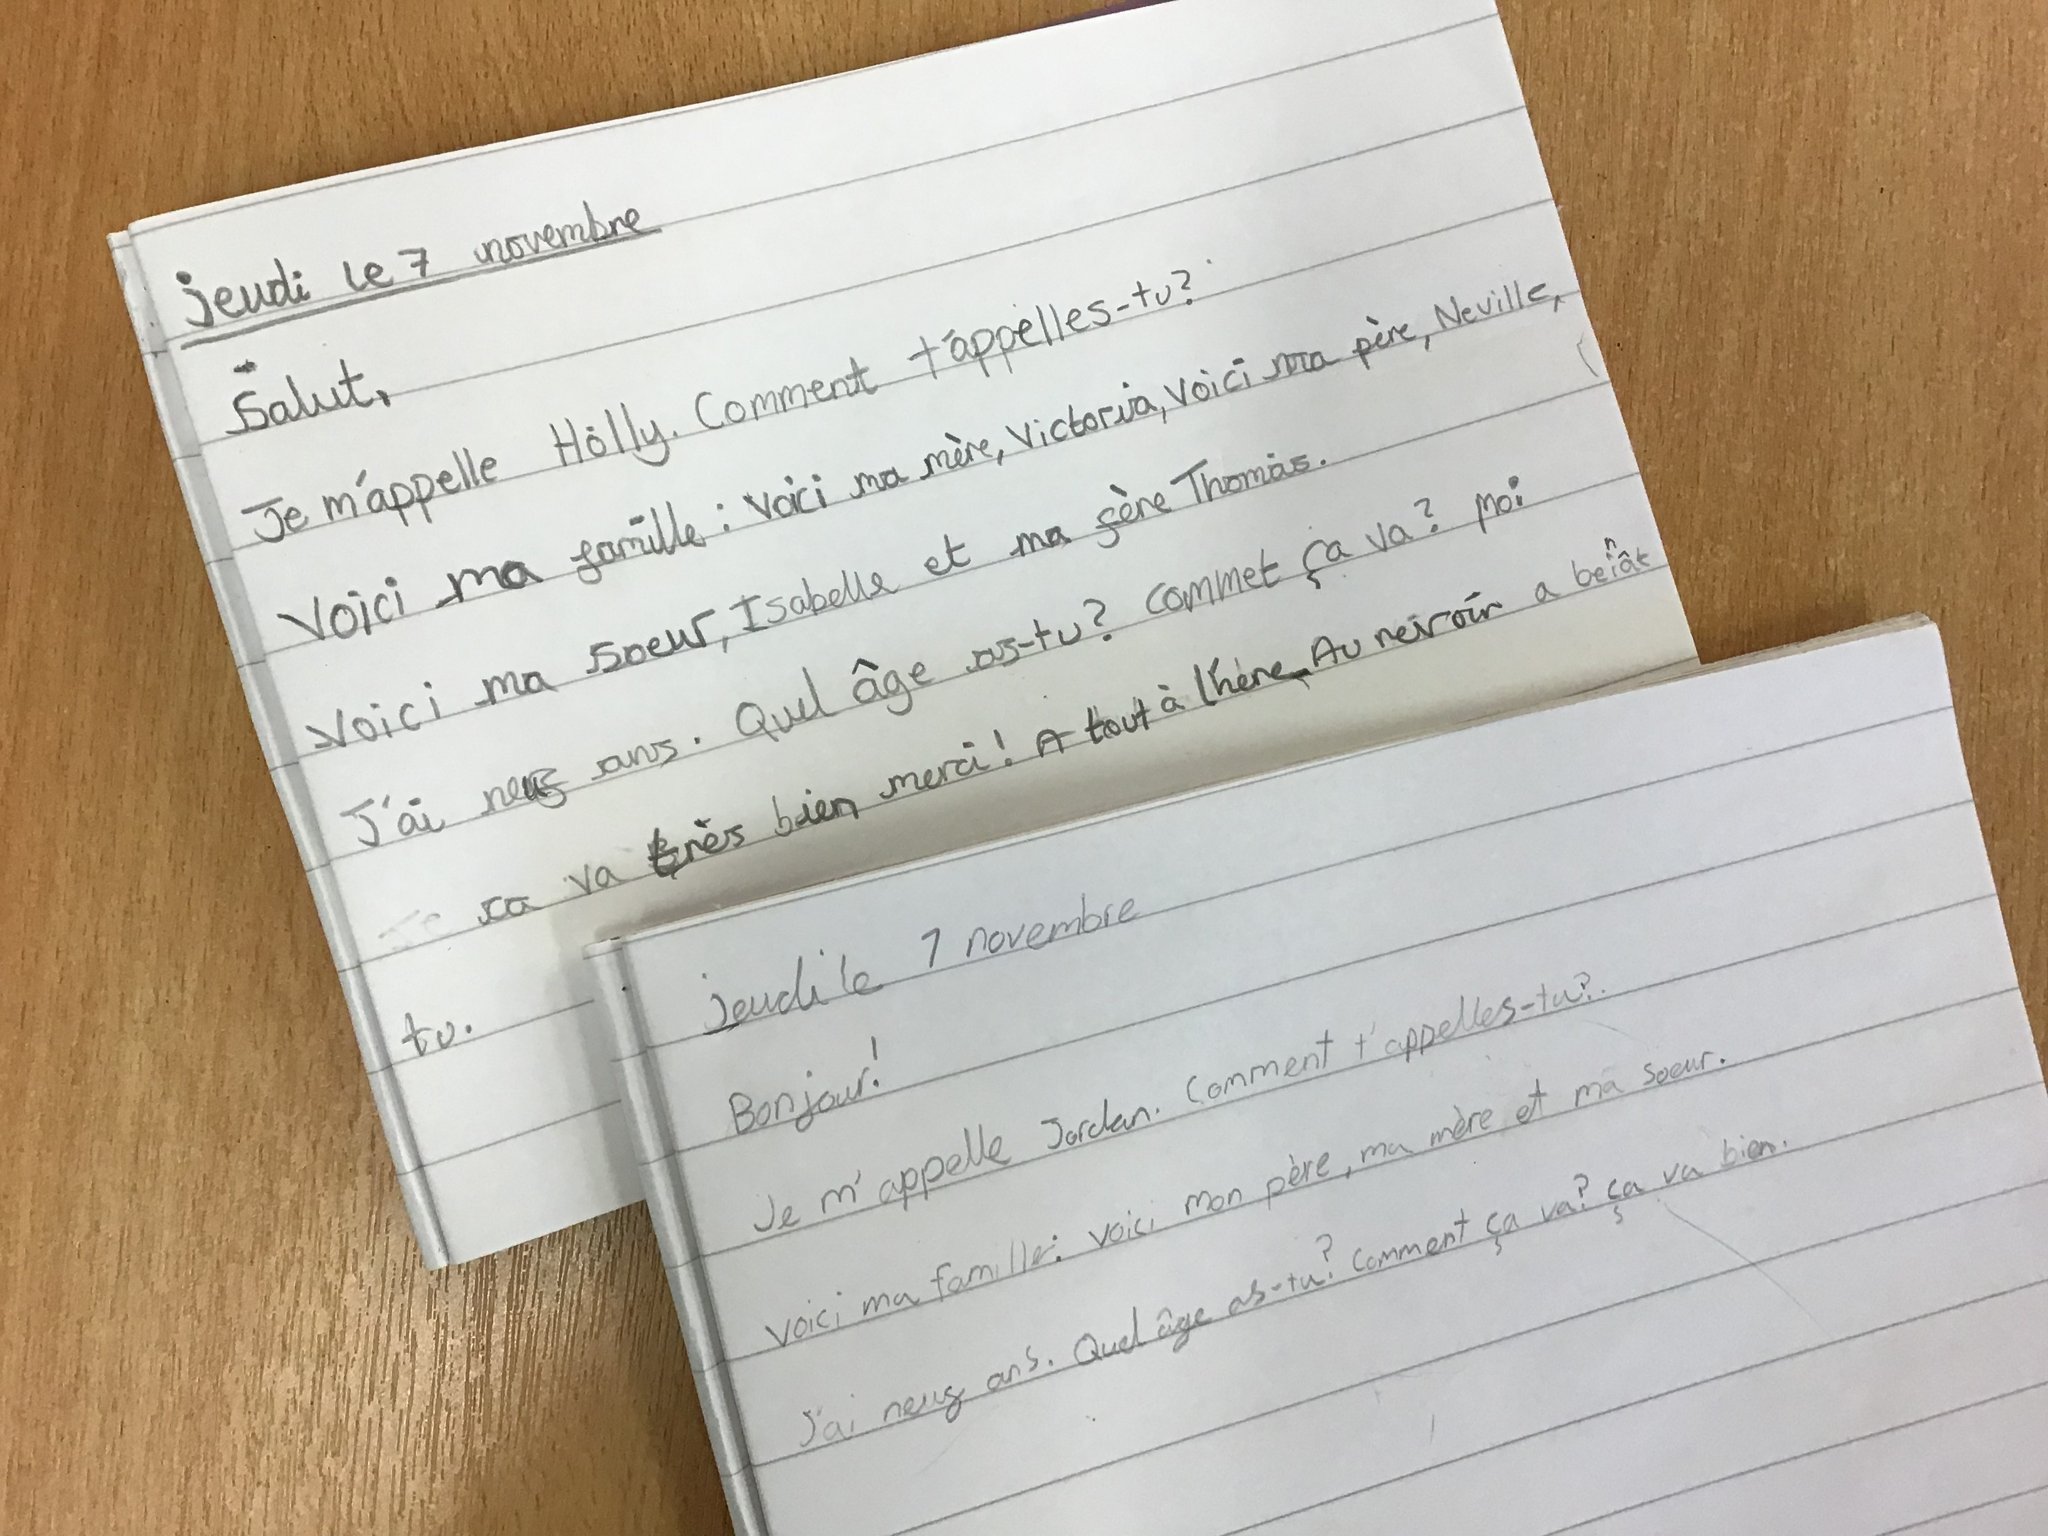 jeudi le 7 novembre
Salut,
Je m'appelle Holly. Comment t'appelles-tu?
Voici ma famille: voici ma mère, Victoria, voici ma père, Neville,
Voici ma soeur, Isabelle et ma fère Thomas.
J'ai neuf ans. Quel âge as-tu? Commet ça va? Moi
sa va très bien merci! A tout à l'hère, Au revoir a beinât
tu.
jeudi le 7 novembre
Bonjour!
Je m'appelle Jordan. Comment t'appelles-tu?.
Voici ma famille: Voici mon père, ma mère et ma soeur.
J'ai neuf ans. Quel âge as-tu? Comment ça va? ça va bien.